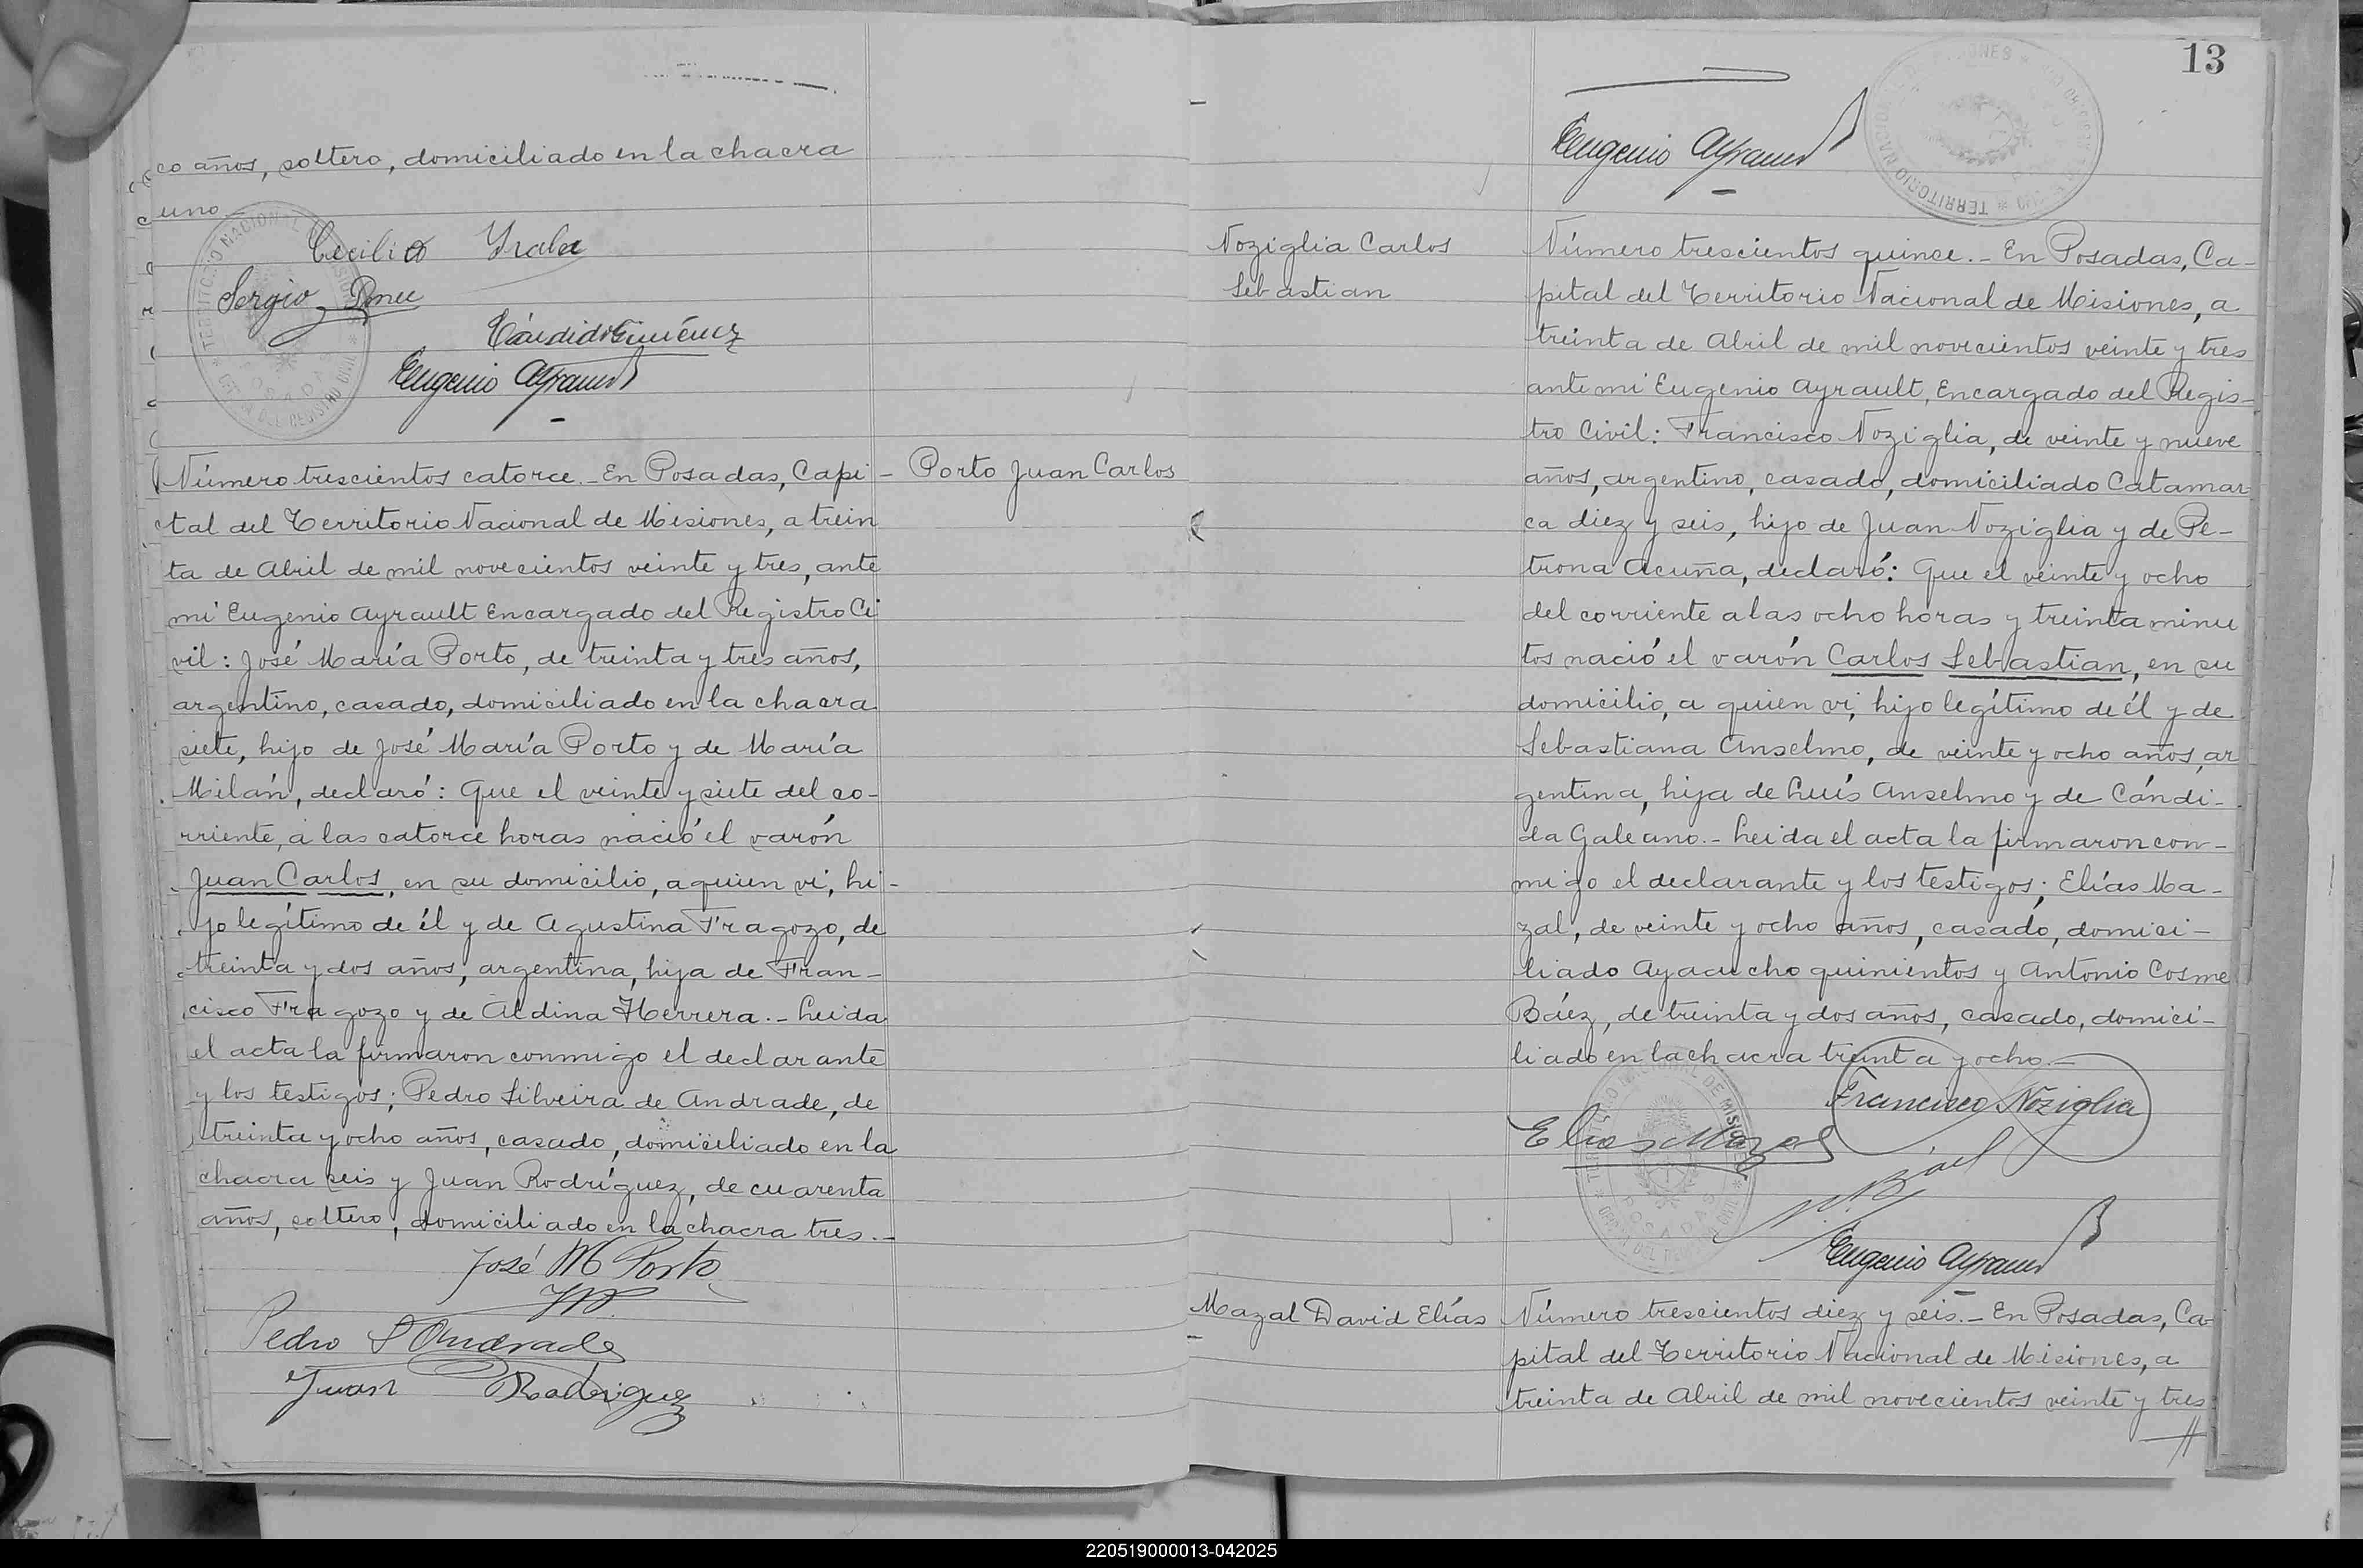 co años, soltero, domiciliado en la chacra
uno
Cecilio Yrala
Sergio
Cándido Giménez
Eugenio Ayrault
Número trescientos catorce.- En Posadas, Capi-
Porto Juan Carlos
tal del Territorio Nacional de Misiones, a trein
ta de Abril de mil novecientos veinte y tres, ante
mí Eugenio Ayrault Encargado del Registro Ci
vil: José María Porto, de treinta y tres años,
argentino, casado, domiciliado en la chacra
siete, hijo de José María Porto y de María
Milán, declaró: Que el veinte y siete del co-
rriente, a las catorce horas nació el varón
Juan Carlos, en su domicilio, a quien ví, hi-
jo legítimo de él y de Agustina Fragozo, de
treinta y dos años, argentina, hija de Fran-
cisco Fragozo y de Aldina Herrera.- Leida
el acta la firmaron conmigo el declarante
y los testigos; Pedro Silveira de Andrade, de
treinta y ocho años, casado, domiciliado en la
chacra seis y Juan Rodríguez, de cuarenta
años, soltero, domiciliado en la chacra tres.-
José M Porto
Pedro S Andrade
Juan Rodriguez
13
Eugenio Ayrault
Noziglia Carlos
Sebastian
Número trescientos quince.- En Posadas, Ca-
pital del Territorio Nacional de Misiones, a
treinta de Abril de mil novecientos veinte y tres
ante mí Eugenio Ayrault, Encargado del Regis-
tro Civil: Francisco Noziglia, de veinte y nueve
años, argentino, casado, domiciliado Catamar
ca diez y seis, hijo de Juan Noziglia y de Pe-
trona Acuña, declaró: Que el veinte y ocho
del corriente a las ocho horas y treinta minu
tos nació el varón Carlos Sebastian, en su
domicilio, a quien ví, hijo legítimo de él y de
Sebastiana Anselmo, de veinte y ocho años, ar
gentina, hija de Luís Anselmo y de Cándi-
da Galeano.- Leida el acta la firmaron con-
migo el declarante y los testigos; Elías Ma-
zal, de veinte y ocho años, casado, domici-
liado Ayacucho quinientos y Antonio Cosme
Báez, de treinta y dos años, casado, domici-
liado en la chacra treinta y ocho.-
Francisco Noziglia
Elias Mazal
Eugenio Ayrault
Mazal David Elías
Número trescientos diez y seis.- En Posadas, Ca
pital del Territorio Nacional de Misiones, a
treinta de Abril de mil novecientos veinte y tres
220519000013-042025